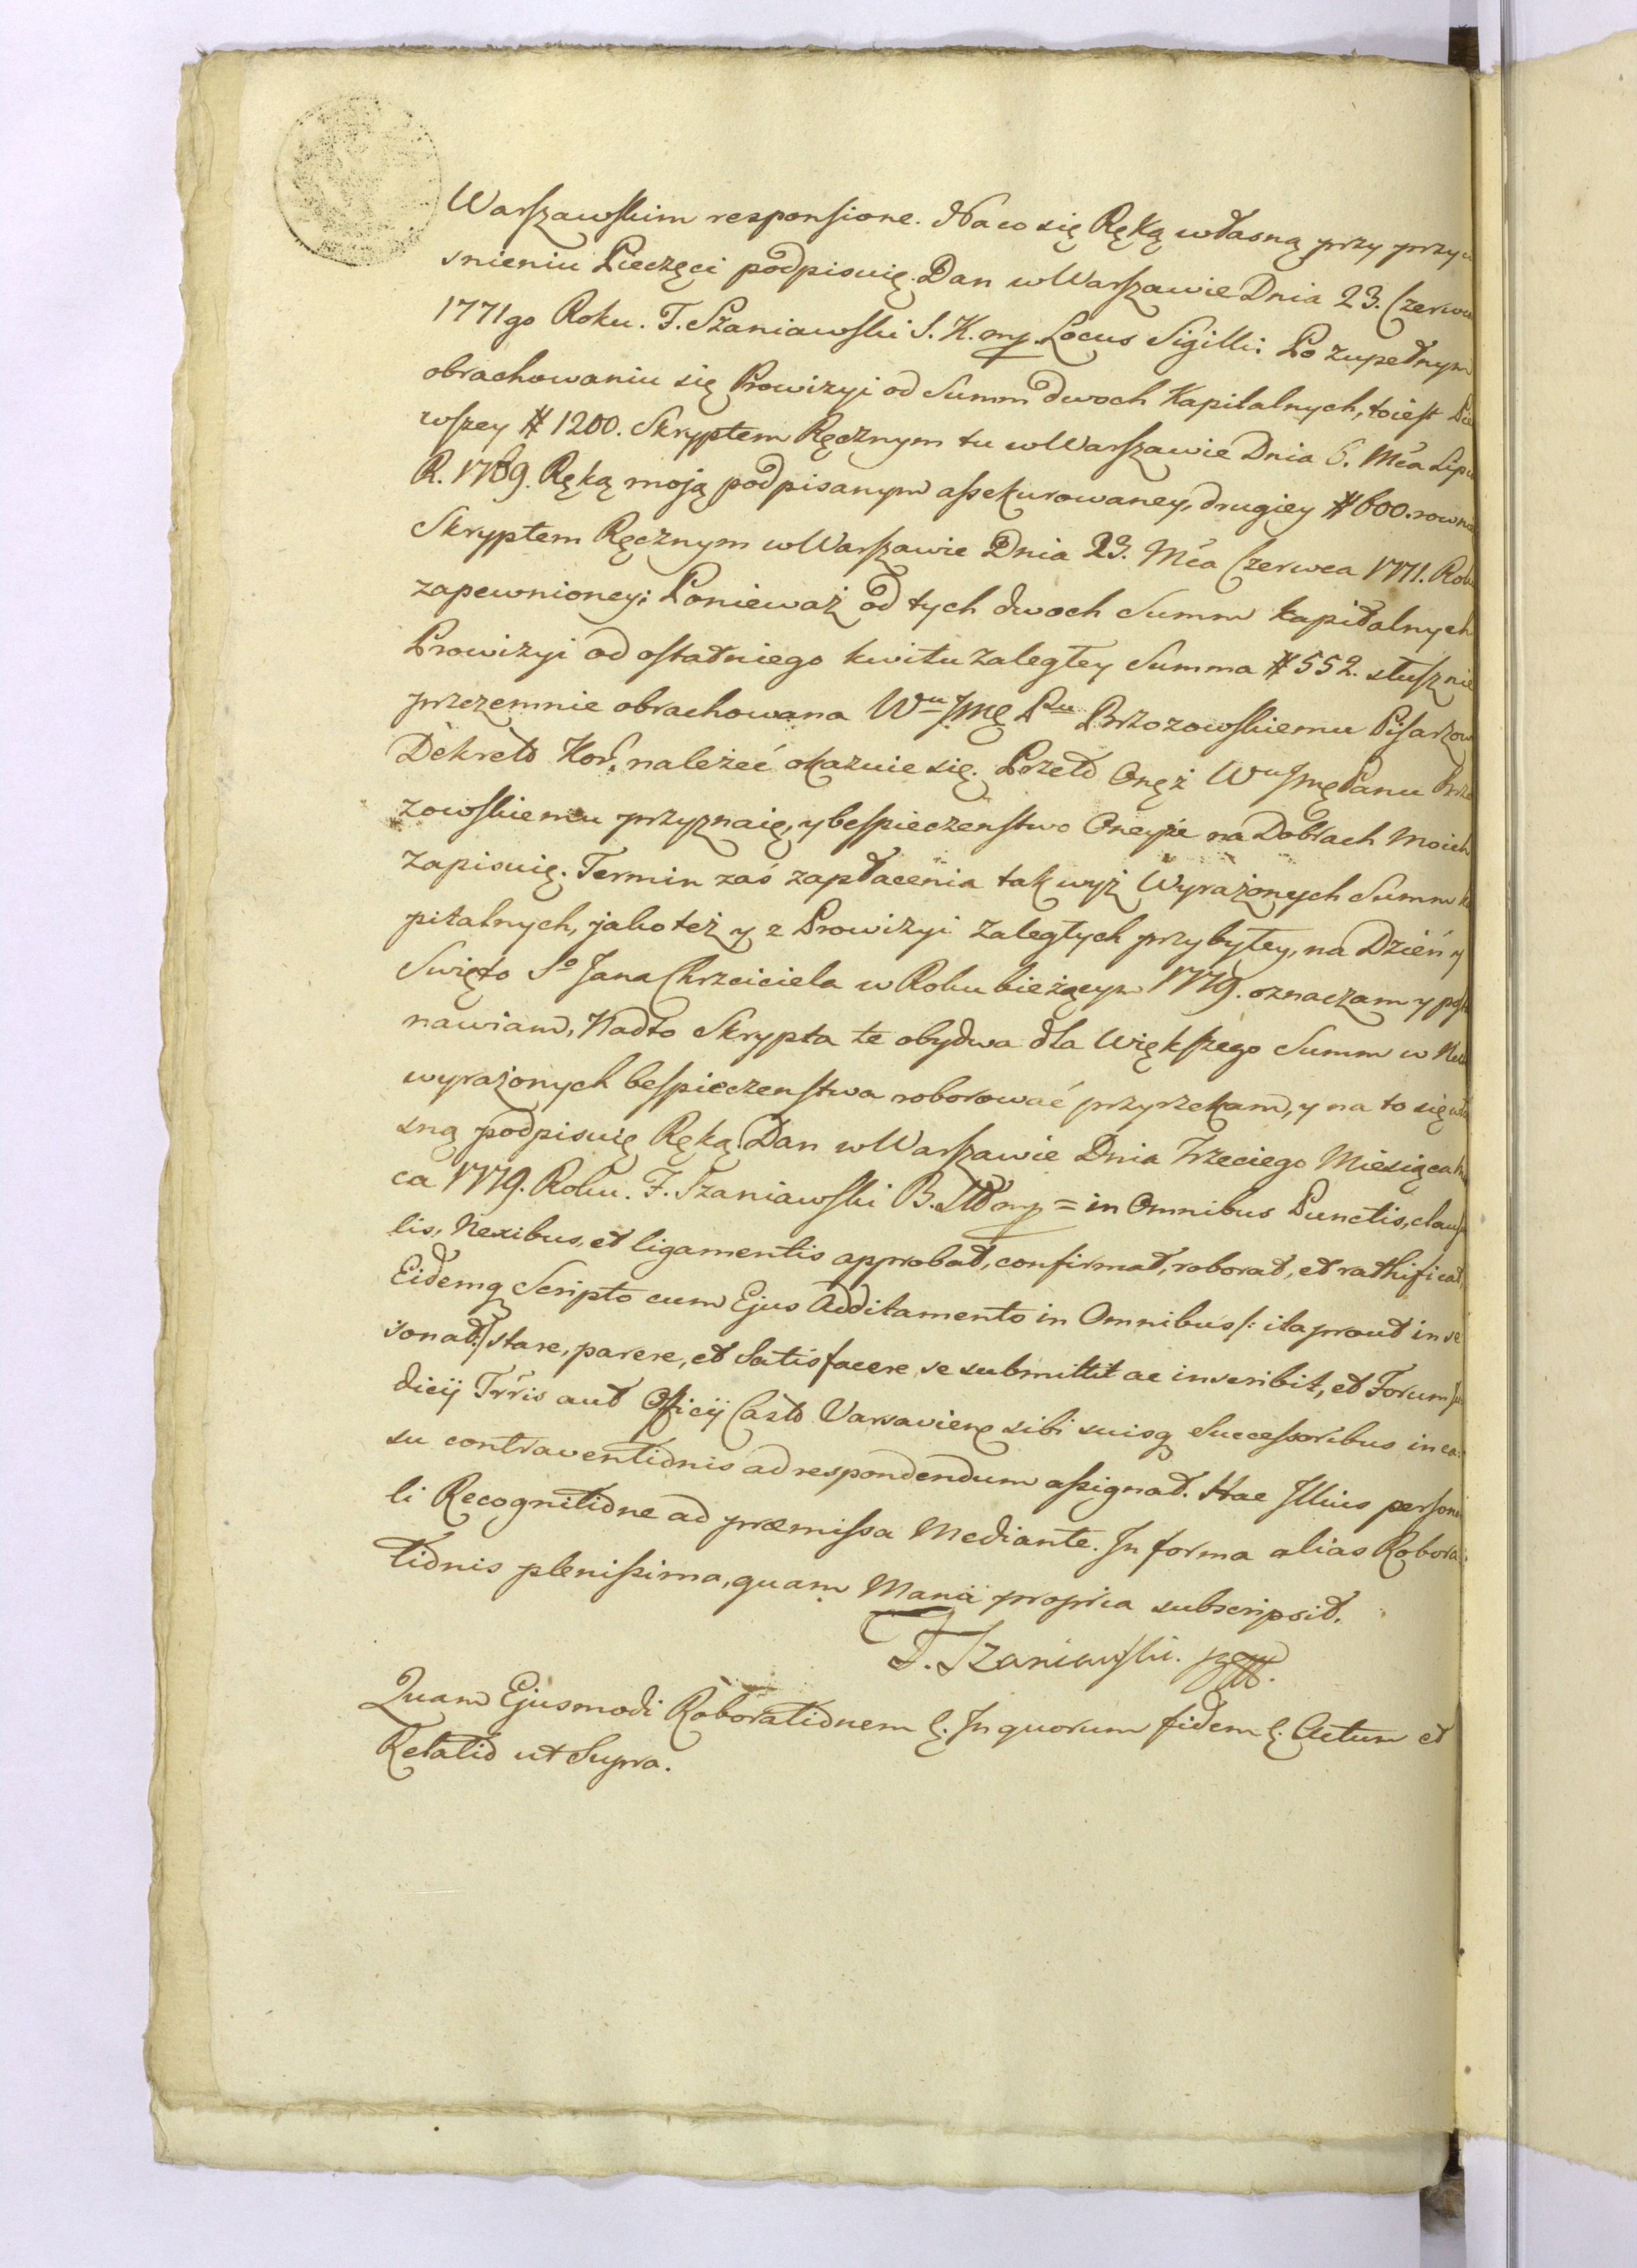 Warszawskim responsione. Na co się Ręką własną przy przyci
snieniu Pieczęci podpisuię. Dan w Warszawie Dnia 23. Czerwca
1771go Roku. F. Szaniawski S. K. mp. Locus Sigilli: Po zupełnym
obrachowaniu się Prowizyi od Summ dwoch Kapitalnych, toiest Pie
wszey # 1200. Skryptem Ręcznym tu w Warszawie Dnia 6. Mca Lipca
R. 1769. Ręką moją podpisanym assekurowaney, drugiey # 600. rownie
Skryptem Ręcznym w Warszawie Dnia 23. Mca Czerwca 1771. Roku
zapewnioney; Ponieważ od tych dwoch Summ kapitalnych
Prowizyi od ostatniego kwitu zaległey Summa # 552. słusznie
przezemnie obrachowana Wu Jmę Pu Brzozowskiemu Pisarzow
Dekret Kor: należeć okazuie się. Przeto Onęż Wu Jmę Panu Brzo
zowskiemu przyznaię, y bespieczenstwo Oneyże na Dobrach Moich
zapisuię. Termin zaś zapłacenia tak wyż Wyrażonych Summ ka
pitalnych, jako też y z Prowizyi zaległych przybyłey, na Dzień y
Swięto So Jana Chrzciciela w Roku bieżącym 1779. oznaczam y posta
nawiam, Nadto Skrypta te obydwa dla Większego Summ w Nich
wyrażonych bespieczenstwa roborować przyrzekam, y na to się wła
sną podpisuię Ręką. Dan w Warszawie Dnia Trzeciego Miesiąca
ca 1779. Roku. F. Szaniawski B. mp = in Omnibus Punctis, clausu
lis, Nexibus, et ligamentis approbat, confirmat, roborat, et rathificat,
Eidemq Scripto cum Ejus Additamento in Omnibus /: ita prout in se
sonat :/ stare, parere, et Satisfacere se submittit ac inscribit, et Forum Ju
dicij Trris aut Officij Casto Varsavien sibi suisq Successoribus in ca:
su contraventionis ad respondendum assignat. Hac Illius persona
li Recognitione ad præmissa Mediante. In forma alias Robora:
tionis plenissima, quam Manu propria subscripsit.
F. Szaniawski. mp.
Quam Ejusmodi Roborationem &. In quorum fidem &. Actum et
Relatio ut Supra.